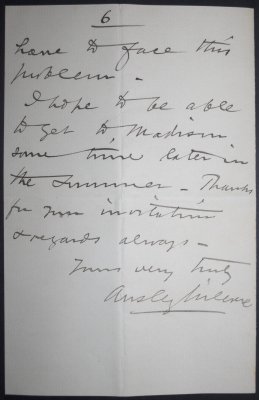 6
have to face this
problem -
I hope to be able
to get to Madison
some time later in
the summer - Thanks
for your invitation
& regards always -
Yours very truly
Ansley Wilcox